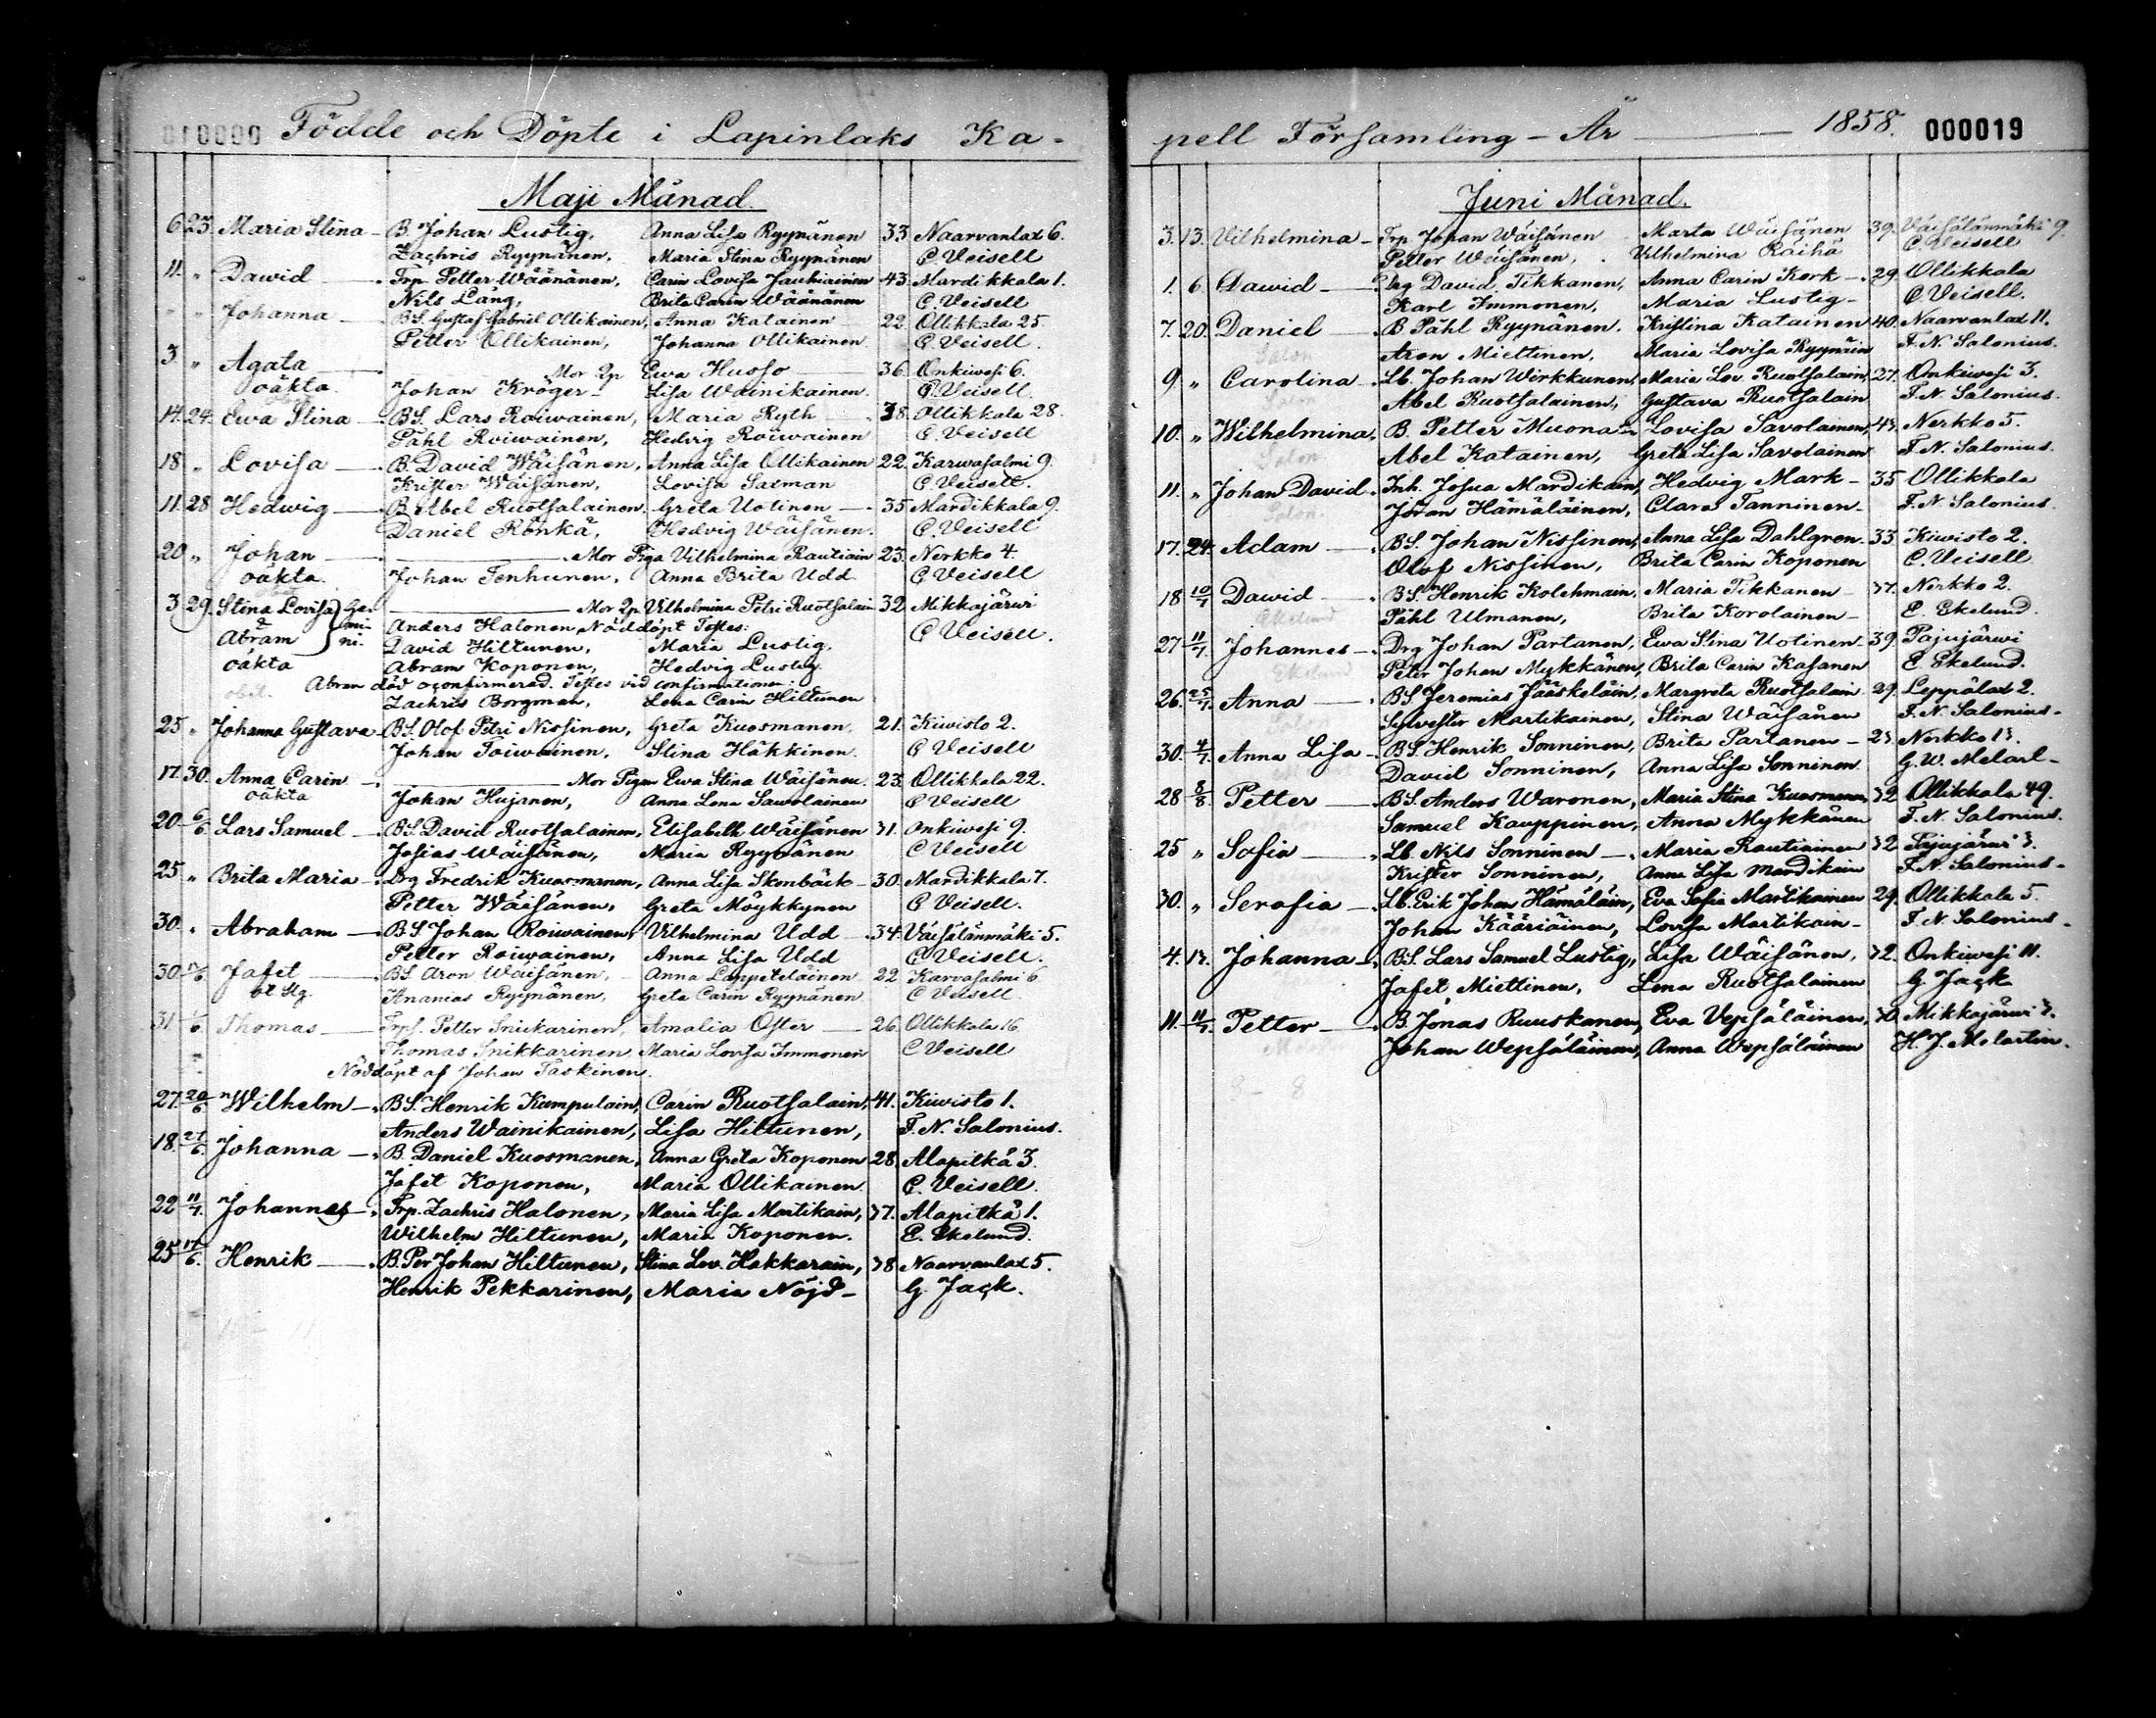 010000 Födde och Döpte i Lapinlaks Ka-
Maji Månad.
6. 23. Maria Stina - B. Johan Lustig, Anna Lisa Ryynänen 33. Naarvanlax 6.
Zachris Ryynänen, Maria Stina Ryynänen C. Veisell
11. " Dawid - Trp. Petter Wäänänen, Carin Lovisa Jauhiainen 43. Mardikkala 1.
Nils Lang, Brita Carin Wäänänen C. Veisell
" " Johanna - BS. Gustaf Gabriel Ollikainen, Anna Katainen 22. Ollikkala 25
Petter Ollikainen, Johanna Ollikainen. C. Veisell.
3. " Agata - Mor 2p Ewa Husso - 36. Onkiwesi 6.
oäkta. Johan Kröger - Lisa Wainikainen. C. Veisell.
14. 24. Ewa Stina - BS. Lars Roiwainen, Maria Ryth 38. Ollikkala 28.
Påhl Roiwainen, Hedvig Roiwainen C. Veisell
18. " Lovisa - B. David Wäisänen, Anna Lisa Ollikainen 22. Karwasalmi 9.
Krister Wäisänen, Lovisa Saxman C. Veisell.
11. 28 Hedwig - B. Abel Ruotsalainen. Greta Uotinen - 35 Mardikkala 9.
Daniel Rönkä, Hedvig Wäisänen. C. Veisell
20. " Johan - Mor Piga Vilhelmina Rautiain 23. Nerkko 4.
oäkta. Johan Tenhunen, Anna Brita Udd C. Veisell
3. 29. Stina Lovisa } Ge- Mor 2p Vilhelmina Petri Ruotsalain 32. Mikkajärwi
& mi- Anders Halonen, Nöddöpt Testes: C Veisell.
Abram ni. David Hiltunen, Maria Lustig,
oäkta Abram Koponen, Hedvig Lustig.
obit. Abram död oconfirmerad. Testes vid confirmationen:
Zachris Borgman, Lena Carin Hiltunen
25 " Johanna Gustava - BS. Olof Petri Nissinen, Greta Kuosmanen, 21. Kiwisto 2.
Johan Toiwainen, Stina Häkkinen. C Veisell
17. 30. Anna Carin - Mor Pigan Ewa Stina Wäisänen. 23. Ollikkala 22.
oäkta Johan Hujanen, Anna Lena Sawolainen C Veisell
20 6/6. Lars Samuel - BS. David Ruotsalainen, Elisabeth Wäisänen 31. Onkiwesi 9.
Josias Wäisänen, Maria Ryynänen C Veisell
25 " Brita Maria - Drg Fredrik Kuosmanen, Anna Lisa Skenbäck - 30. Mardikkala 7.
Petter Wäisänen, Greta Moykkynen C Veisell.
30. " Abraham - BS Johan Roiwainen, Vilhelmina Udd - 34. Väisälänmäki 5.
Petter Roiwainen, Anna Lisa Udd C. Veisell.
30. Jafet - BS. Aron Wäisänen, Anna Lappeteläinen 22 Karvasalmi 6
Ananias Ryynänen, Greta Carin Ryynänen C Veisell.
31 Thomas - Trps. Petter Snickarinen, Amalia Öster - 26. Ollikkala 16.
Thomas Snikkarinen, Maria Lovisa Immonen C Veisell
Nöddöpt af Johan Taskinen.
27. 20/6. Wilhelm - BS. Henrik Kumpulain, Carin Ruotsalain, 41. Kiwisto 1.
Anders Wainikainen, Lisa Hiltunen, F. N. Salonius.
18. 27/6. Johanna - B. Daniel Kuosmanen, Anna Greta Koponen 28. Alapitkä 3.
Jafet Koponen, Maria Ollikainen. C. Veisell.
22 11/7. Johannes - Trp. Zachris Halonen, Maria Lisa Martikain, 37. Alapitkä 1.
Wilhelm Hiltunen, Maria Koponen. E. Ekelund.
25 Henrik - B. Per Johan Hiltunen, Stina Lov. Hakkarain, 38 Naarvanlax 5.
Henrik Pekkarinen, Maria Nöjd - G. Jack.
pell Församling - År 1858. 000019
Juni Månad.
3. 13. Vilhelmina - Trp. Johan Wäisänen Marta Wäisänen 39. Väisälänmäki 9.
Petter Wäisänen, Vilhelmina Räihä C. Veisell
1. 6. Dawid - Drg David Tikkanen, Anna Carin Kork - 29. Ollikkala
Karl Immonen, Maria Lustig - C Veisell.
7. 20. Daniel - B. Påhl Ryynänen. Kristina Katainen 40. Naarvanlax 11.
Salon Aron Miettinen, Maria Lovisa Ryynäin F. N. Salonius.
9. " Carolina - Lb. Johan Wirkkunen, Maria Lov. Ruotsalain, 27. Onkiwesi 3.
Salon Abel Ruotsalainen, Gustava Ruotsalain F. N. Salonius.
10. " Wilhelmina, B. Petter Muona Lovisa Savolainen, 43. Nerkko 5.
Salon Abel Katainen, Greta Lisa Savolainen F. N. Salonius.
11. " Johan David. Inh. Josua Mardikain, Hedvig Mark - 35 Ollikkala
Salon. Jöran Hämäläinen, Clara Tanninen - F. N. Salonius.
17. 24. Adam - BS. Johan Nissinen, Anna Lisa Dahlgren. 33. Kiwisto 2.
Olof Nissinen, Brita Carin Koponen C. Veisell
18 10/7 Dawid - BS. Henrik Kolehmain, Maria Tikkanen - 37. Nerkko 2.
Ekelund Påhl Ulmanen, Brita Korolainen - E. Ekelund.
27 11/7. Johannes - Drg Johan Partanen, Ewa Stina Uotinen - 39. Pajujärwi
Ekelund Peter Johan Mykkänen, Brita Carin Kasanen E. Ekelund.
26. 25/7. Anna - BS. Jeremias Jääskeläin, Margreta Ruotsalain 29. Leppälax 2.
Sylvester Martikainen, Stina Wäisänen F. N. Salonius -
30. 4/7. Anna Lisa - BS. Henrik Sonninen, Brita Partanen - 23. Nerkko 13.
David Sonninen, Anna Lisa Sonninen G. W. Melart -
28 8/8. Petter - BS. Anders Waronen, Maria Stina Kuosmanen, 32 Ollikkala 49.
Samuel Kauppinen, Anna Mykkänen F. N. Salonius.
25 " Sofia - Lb. Nils Sonninen - Maria Rautiainen 32 Pajujärwi 3.
Krister Sonninen, Anna Lisa Mardikain F. N. Salonius -
30. " Serafia - Lb. Erik Johan Hämäläin, Eva Sofia Martikainen 29. Ollikkala 5.
Johan Kääriäinen, Lovisa Martikain - F. N. Salonius -
4. 13. Johanna - BS. Lars Samuel Lustig, Lisa Wäisänen, 32. Onkiwesi 11.
Jafet Miettinen, Lena Ruotsalainen G. Jack
11. 11/7. Petter - B. Jonas Ruuskanen, Eva Vepsäläinen, 30. Mikkajärwi 3.
Johan Wepsäläinen, Anna Wepsäläinen H. J. Melartin.
8 - 8